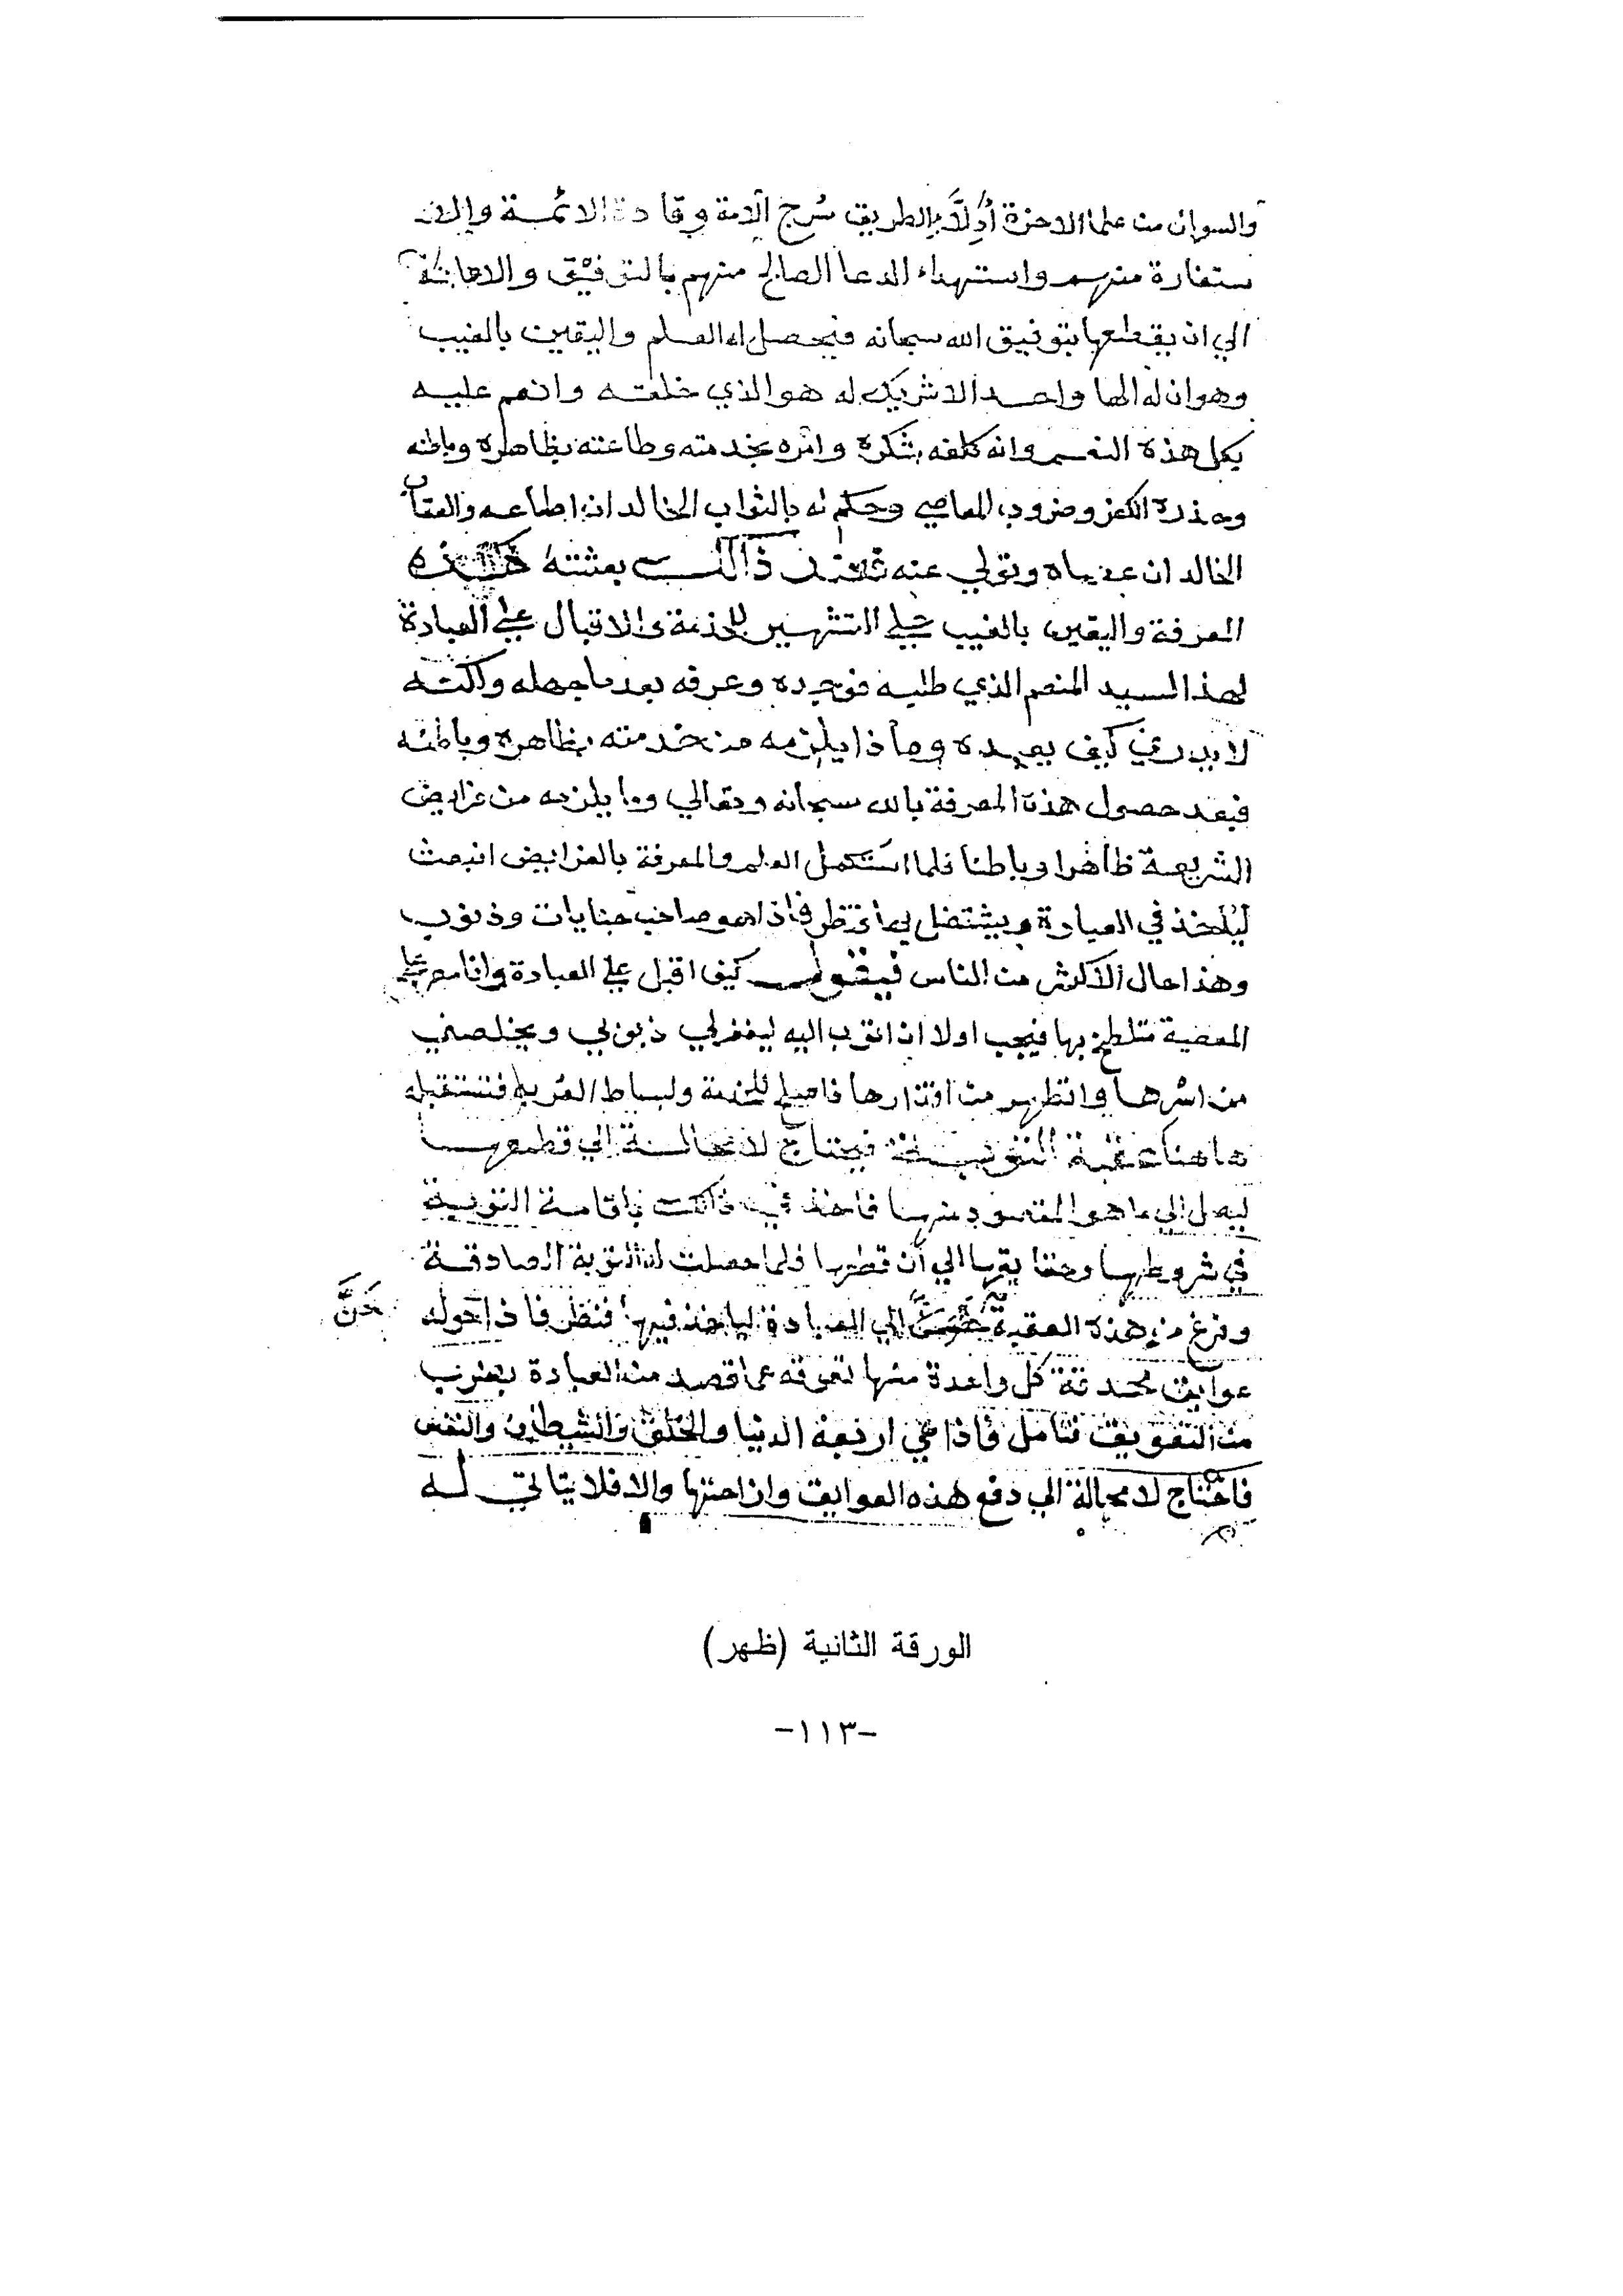 والسوال من علما الاخرة أدِلَّاء الطريق سُرج الامة وقادة الائمة والا
ستفارة منهم واستهداء الدعا الصالح منهم بالتوفيق والاعانة
الي ان يقطعها بتوفيق الله سبحانه فيحصل له العلم واليقين بالغيب
وهو ان له الها واحدا لا شريك له هو الذي خلقه وانعم عليه
بكل هذه النعم وانه كلفه بشكره وامره بخدمته وطاعته بظاهره وباطنه
وحذره الكفر وضروب المعاصي وحكم له بالثواب الخالد ان اطاعه والعقاب
الخالد ان عصاه وتولي عنه فعند ذالك بعثته هذه
المعرفة واليقين بالغيب علي التشمير للخدمة والاقبال علي العبادة
لهذا السيد المنعم الذي طلبه فوجده وعرفه بعد ما جهله ولكنه
لا يدري كيف يعبده وماذا يلزمه من خدمته بظاهره وباطنه
فبعد حصول هذه المعرفة بالله سبحانه وتعالي وما يلزمه من فرايض
الشريعة ظاهرا وباطنا فلما استكمل العلم والمعرفة بالفرايض انبعث
ليأخذ في العبادة ويشتغل بها فنظر فاذا هو صاحب جنايات وذنوب
وهذا حال الاكثر من الناس فيقول كيف اقبل علي العبادة وانا مصر علي
المعصية متلطخ بها فيجب اولا ان اتوب اليه ليغفر لي ذنوبي ويخلصني
من اسرها واتطهر من اقذارها فاصلح للخدمة ولبساط القربه فتستقبله
هاهنا عقبة التوبة فيحتاج لا محالة الي قطعها
ليصل الي ما هو المقصود منها فاخذ في ذالك باقامة التوبة
في شروطها وحقايقها الي أن قطعها فلما حصلت له التوبة الصادقة
وفرغ من هذه العقبة الي العبادة لياخذ فيها فنظر فاذا حوله
حَنَّ
عوايق محدقة كل واحدة منها تعوقه عما قصد من العبادة بضرب
من التعويق فتامل فاذا هي اربعة الدنيا والخلق والشيطان والنفس
فاحتاج لا محالة الي دفع هذه العوايق وازاحتها والا فلا يتاتي له
الورقة الثانية (ظهر)
-١١٣-